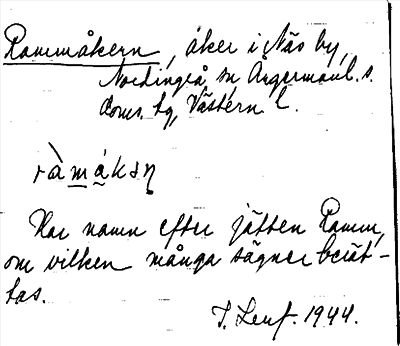 Rammåkern, åker i Näs by,
Nordingrå sn, Ångermanl. s.
doms. tg, Västern. l.
ràmákəṇ
Har namn efter jätten Ramm,
om vilken många sägner berät-
tas.
T. Lenf. 1944.